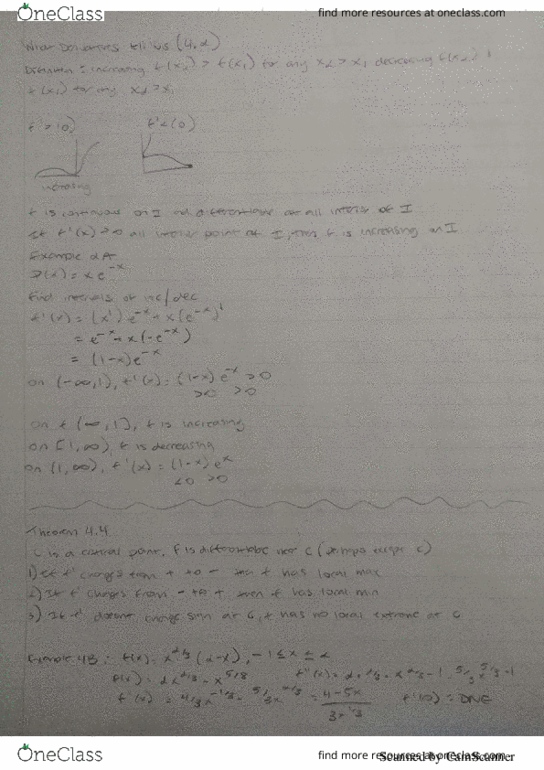 OneClass
find more resources at oneclass.com
What Derivatives tell us (4.2)
Definition: increasing f(x₂) > f(x₁) for any x₂ > x₁ decreasing f(x₂)
f(x₁) for any x₂ > x₁
f' > (0) f' < (0)
increasing
f is continuous on I and differentiable at all I
If f'(x) > 0 all point of I, then f is increasing on I
Example 2A
f(x) = xe^-x
Find intervals of inc/dec
f'(x) = (x') e^-x + x(e^-x)'
= e^-x + x(-e^-x)
= (1-x)e^-x
on (-∞,1), f'(x) = (1-x)e^-x > 0
>0 >0
on (∞,1], f is increasing
on [1,∞), f is decreasing
on (1,∞), f'(x) = (1-x)e^x
<0 >0
Theorem 4.4
C is a critical point. F is differentiable near c ( except c)
1) If f' changes from + to - then f has local max
2) If f' changes from - to + then f has local min
3) If f' doesnt change sign at c, f has no local extreme at c
Example 4B: f(x) = x^2/3 (2-x), -1 ≤ x ≤ 2
f(x) = 2x^2/3 - x^5/3 f'(x) = 2 · 2/3 · x^2/3-1 - 5/3 x^5/3-1
f'(x) = 4/3 x^-1/3 - 5/3 x^2/3 = 4-5x / 3x^1/3 f'(0) = DNE
OneClass
find more resources at oneclass.com
Scanned by CamScanner